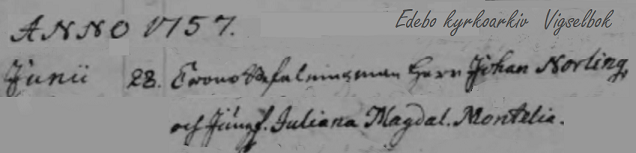 Edebo kyrkoarkiv Vigselbok
ANNO 1757.
Junii 28. Crono Befalningsman Herr Johan Norling,
och Jungf. Juliana Magdal. Montelia.